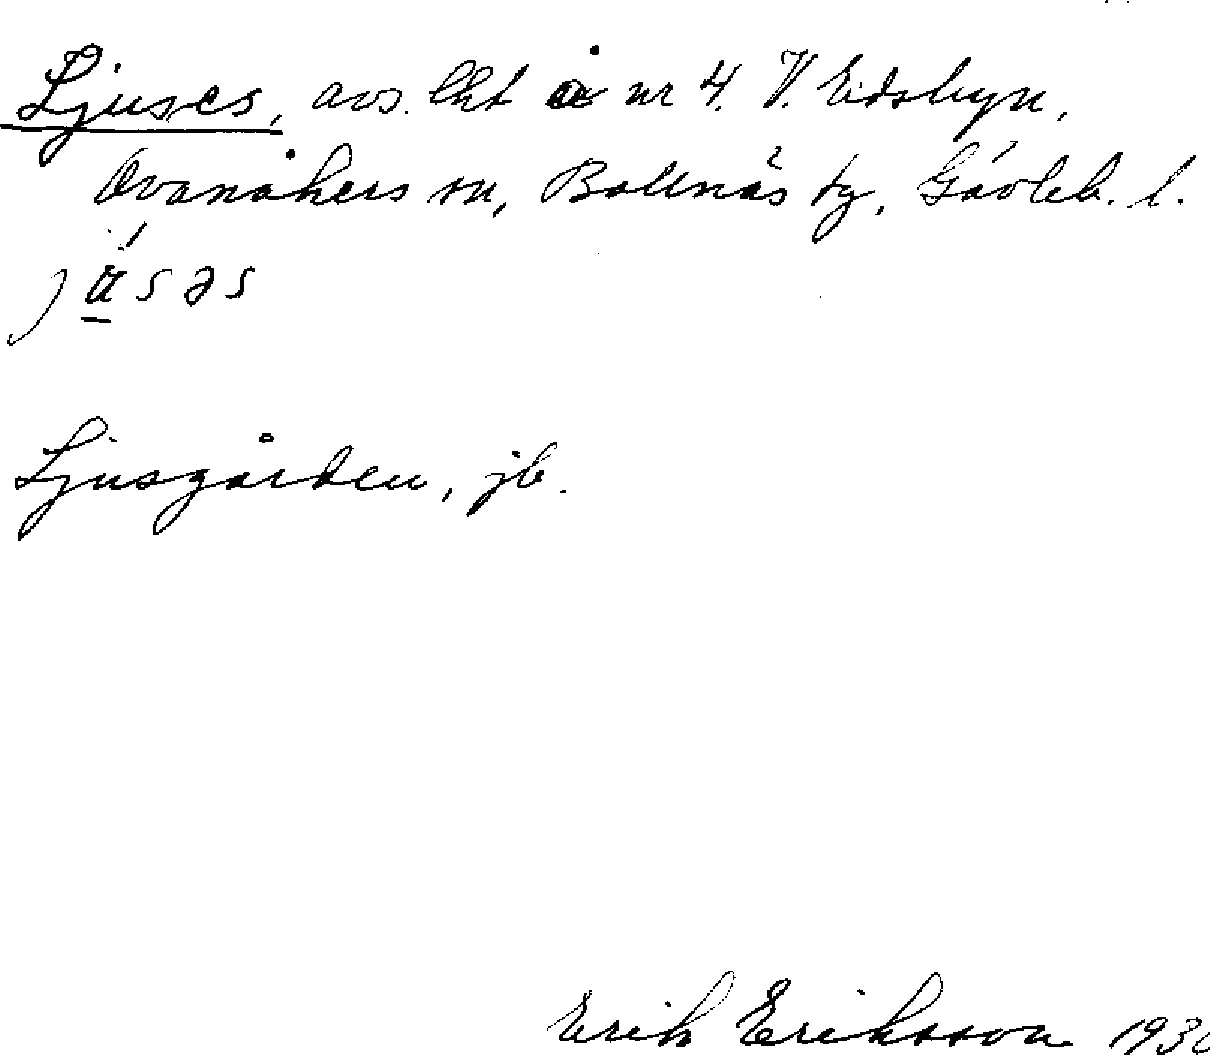 Ljuses, avs. lht å nr 4. V. Edsbyn,
Ovanåkers sn, Bollnäs tg, Gävleb. l.
Ljusgården, jb.
Erik Eriksson